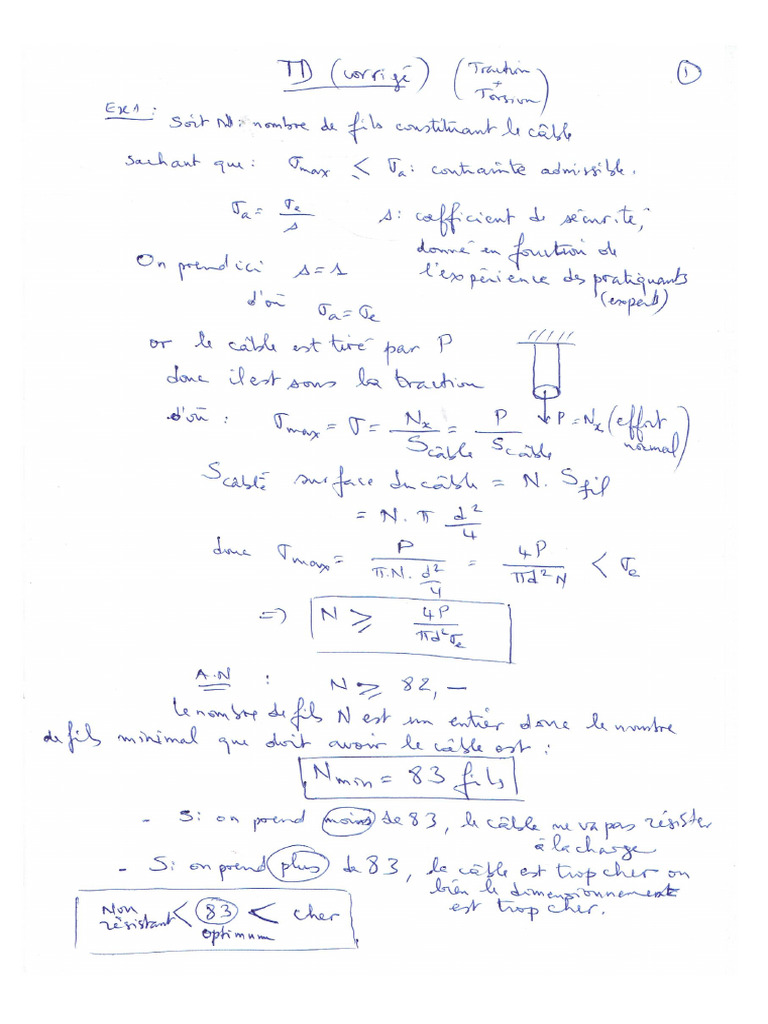 TD (corrigé) (Traction + Torsion) 1
Ex1 : Soit N : nombre de fils constituant le câble
sachant que : σmax ≤ σa : contrainte admissible.
σa = σe / s    s : cofficient de sécurité,
donné en fonction de
On prend ici s = 1    l'expérience des pratiquants
d'où σa = σe    (expert)
or le câble est tiré par P
donc il est sous la traction
d'où : σmax = σ = Nx / Scâble = P / Scâble    P = Nx (effort normal)
Scablé surface du câble = N. Sfil
= N. π d²/4
donc σmax = P / (π.N. d²/4) = 4P / (πd²N) < σe
=> N ≥ 4P / (πd²σe)
A.N : N ≥ 82, —
le nombre de fils N est un entier donc le nombre
de fils minimal que doit avoir le câble est :
Nmin = 83 fils
- Si on prend moins de 83, le câble ne va pas résister
à la charge
- Si on prend plus de 83, le câble est trop cher ou
bien le dimensionnement
est trop cher.
Non résistant < 83 < cher
optimum